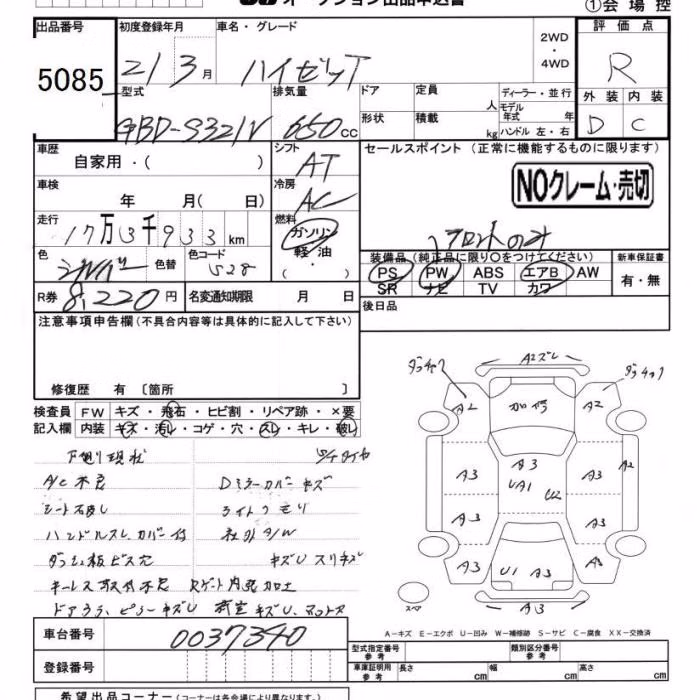 オークション出品申込書
①会場控
出品番号
5085
初度登録年月
21 3月
車名・グレード
ハイゼット
2WD
・
4WD
評価点
R
型式
GBD-S321V
排気量
660cc
ドア
定員
人
ディーラー・並行
モデル年式 年
形状
積載
kg
ハンドル 左・右
外装 内装
D C
車歴
自家用・( )
シフト
AT
車検
年 月( 日)
冷房
AC
走行
17万3千933km
燃料
ガソリン
軽油
・
( )
色
シルバー
色替
色コード
S28
R券 8,220円
名変通知期限 月 日
セールスポイント (正常に機能するものに限ります)
NOクレーム・売切
フロントのみ
装備品 (純正品に限り○をつけてください)
PS PW ABS エアB AW
SR ナビ TV カワ
新車保証書
有・無
後日品
注意事項申告欄(不具合内容等は具体的に記入して下さい)
修復歴 有 〔箇所 〕
検査員 FW キズ・飛石・ヒビ割・リペア跡・×要
記入欄 内装 キズ・汚レ・コゲ・穴・スレ・キレ・破レ
下廻り現状
A/C不良 Dミラーカバーキズ
シート破レ ライトクモリ
ハンドルスレ カバー付 社外AW
ダッシュ板ビス穴 キズUスリキズ
キーレス取付不良 Rゲート内張加工
A2ズレ
A2
加修
A2
A3
A3
A2
UA1
U2
A3
A3
A3
A3
U1
A3
A3
A3
スペア
A－キズ E－エクボ U－凹み W－補修跡 S－サビ C－腐食 XX－交換済
車台番号
0037340
登録番号
型式指定番号
参考
類別区分番号
参考
車庫証明用
参考
長さ cm
幅 cm
高さ cm
希望出品コーナー (コーナーは各会場により異なります。)